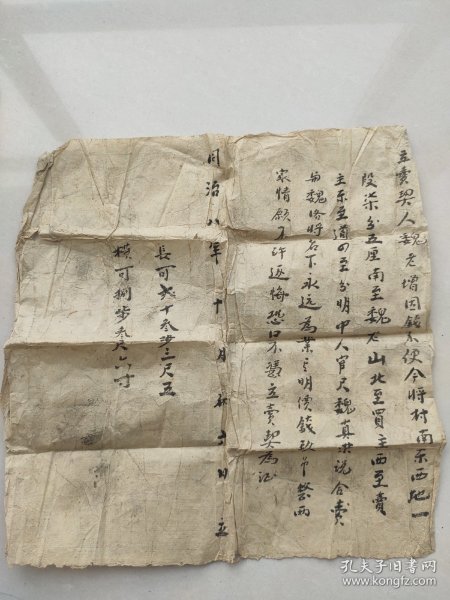 立賣契人魏老增因錢不便今將村南東西地一
段柒分五厘南至魏老山北至買主西至賣
主東至道四至分明中人官尺魏真共說合賣
與魏洛將名下永远為業言明價錢玖吊整兩
家情願不許返悔恐口不憑立賣契為证
同治八年十月初二日立
長可 十叁步三尺五
橫可捌步叁尺六寸
孔夫子旧书网
www.kongfz.com